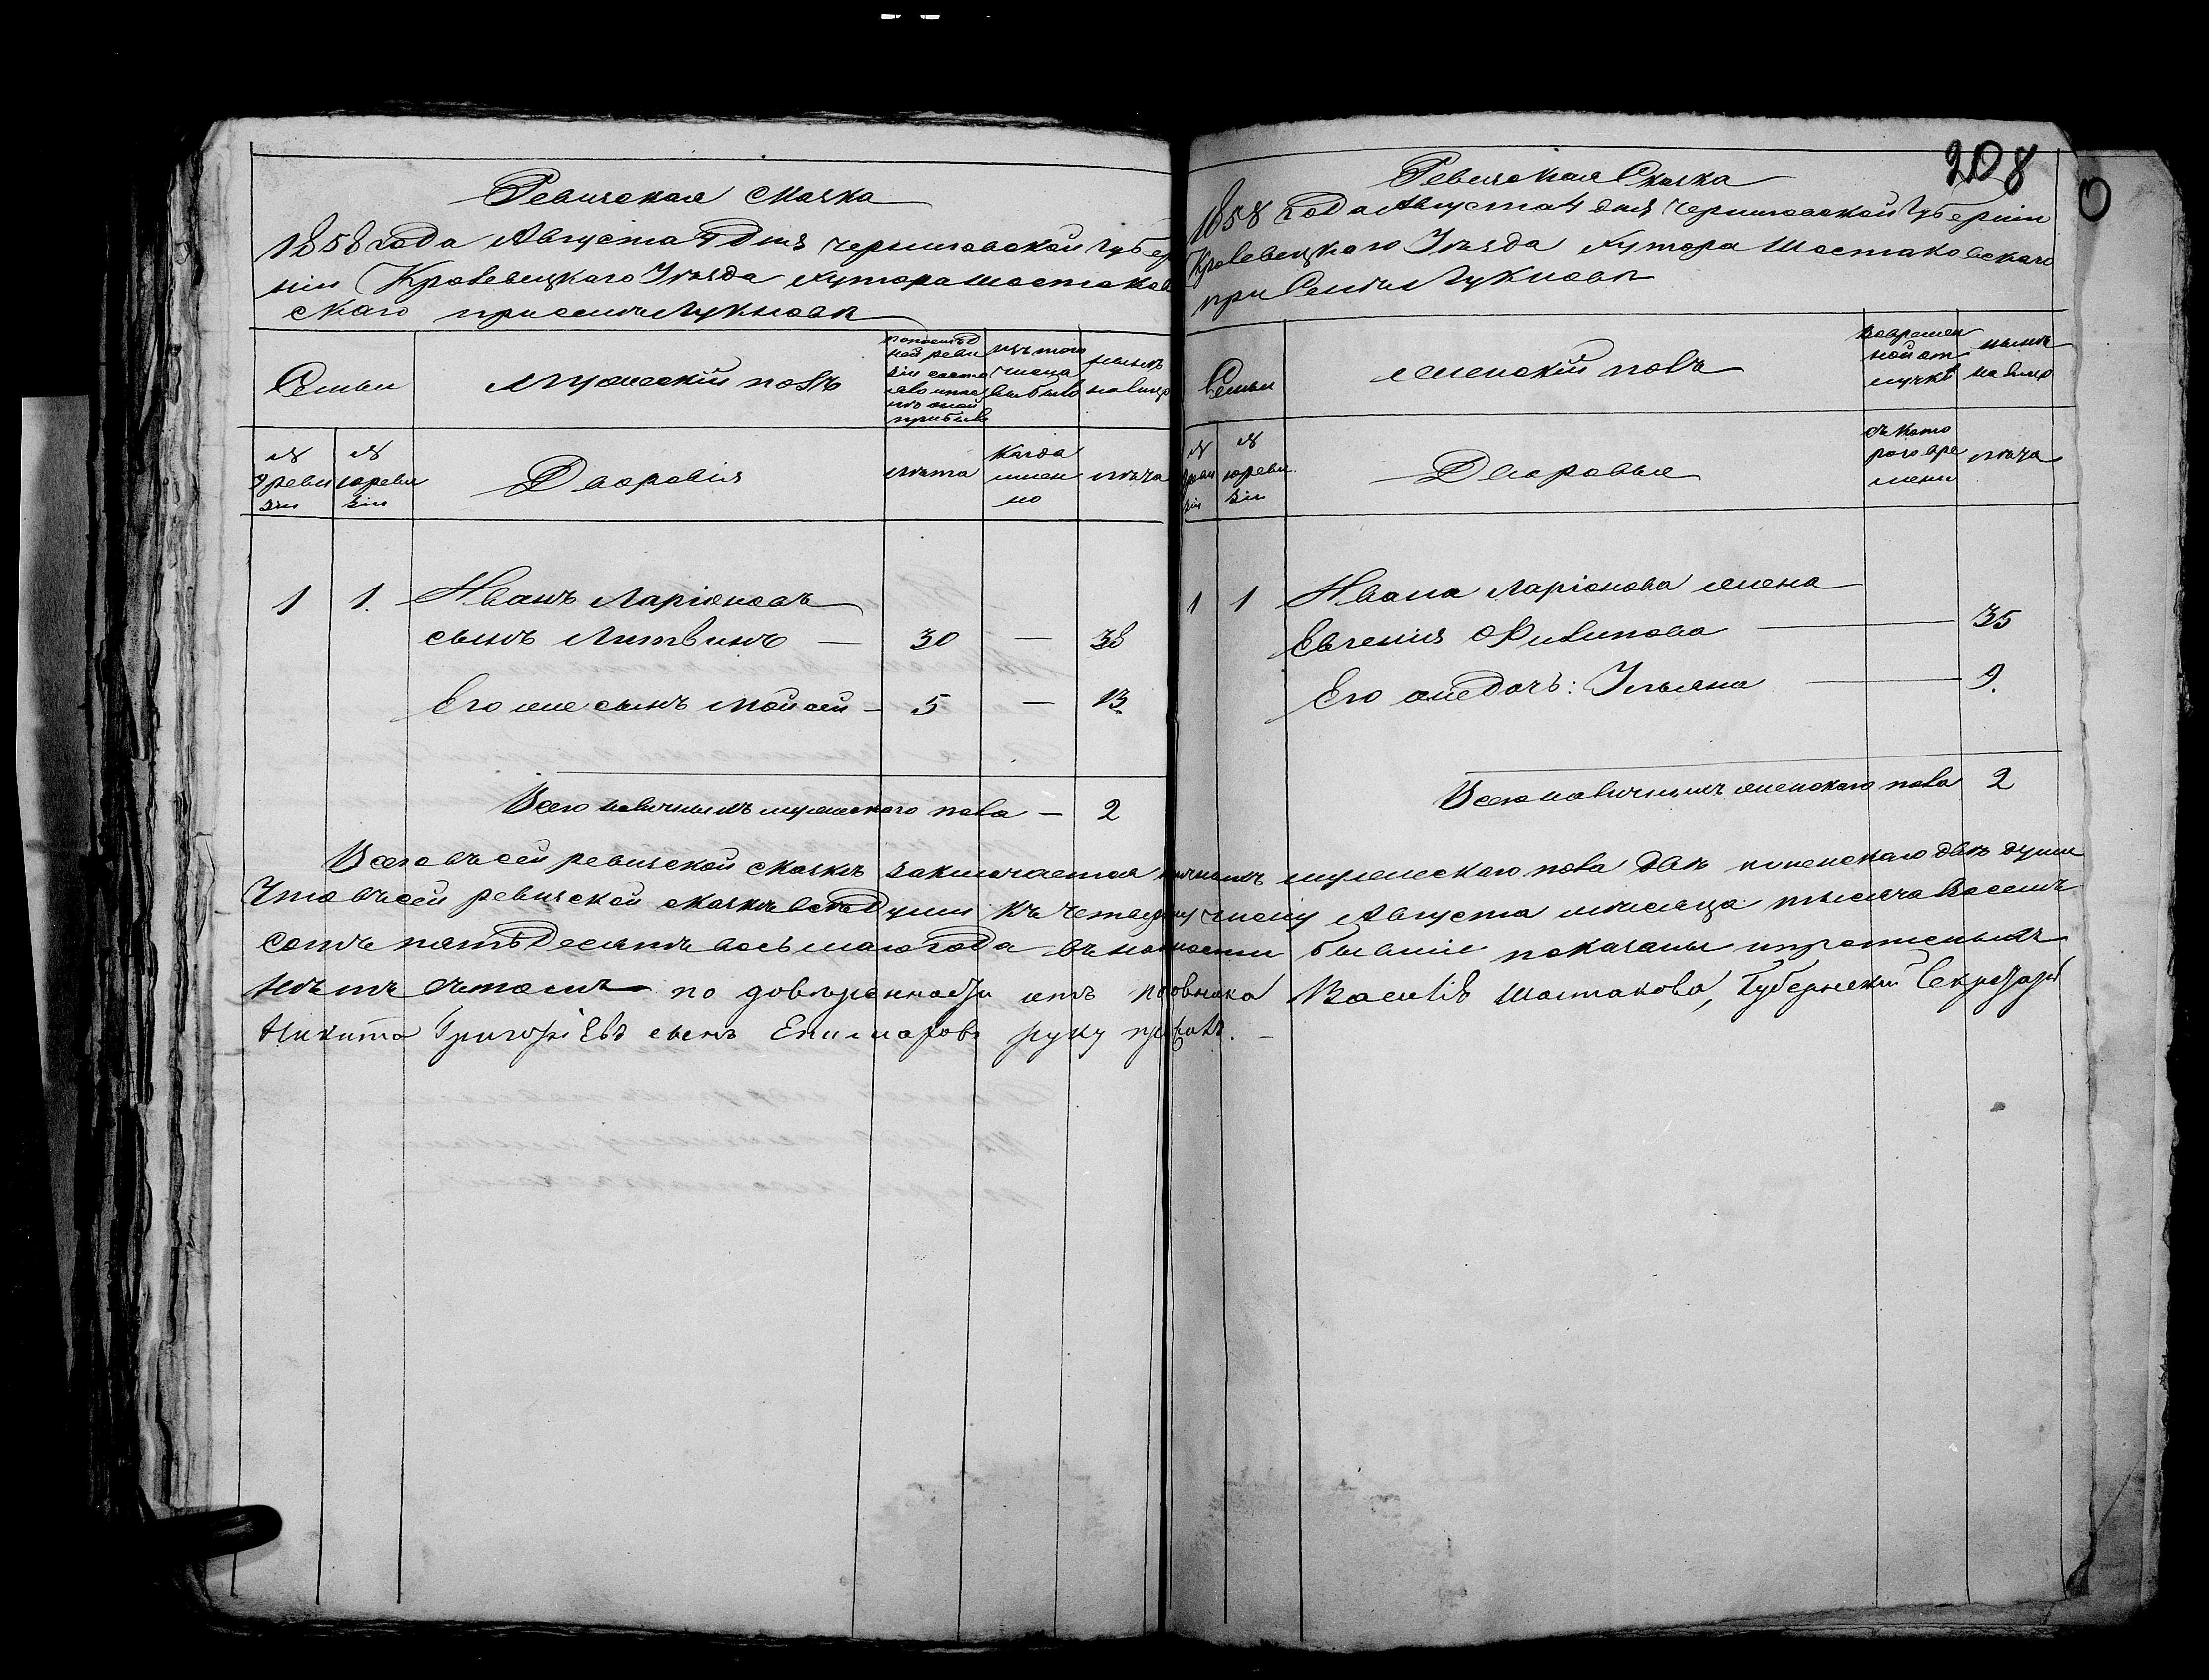 208
Ревизская Сказка
1858 года Августа 4 дня Черниговской Губер
нiи Кролевецкаго Уѣзда хутора Шостаков
скаго при селѣ Лукновѣ
Семьи
Мужескiй полъ
по послѣд
ней реви
зiи состо
яло и пос
лѣ оной
прибыло
изъ того
числа
выбыло
нынѣ
на лицо
№
9 реви
зiи
№
10 реви
зiи
Дворовыя
лѣта
Когда
имен
но
лѣта
1 1. Иванъ Ларiоновъ
сынъ Литвинъ — 30 — 38
Его же сынъ Мойсей — 5 — 13.
Всего наличныхъ мужескаго пола — 2
Ревизская Сказка
1858 года Августа 4 дня Черниговской Губернiи
Кролевецкаго Уѣзда Хутора Шостаковскаго
при Селѣ Лукновѣ
Семьи
женскiй полъ
Во времен
ной от
лучкѣ
нынѣ
на лицо
№
9 реви
зiи
№
10 реви
зiи
Дворовыя
съ кото
раго вре
мени
лѣта
1 1 Ивана Ларiонова жена
Евгенiя Филипова — 35
Его же дочь: Ульяна — 9.
Всего наличныхъ женскаго пола 2
Всего въ сей ревизской сказкѣ заключается мужескаго пола двѣ и женскаго двѣ души
Что въ сей ревизской сказкѣ всѣ души къ четвертому числу Августа мѣсяца тысяча восемь
сотъ пятьдесятъ восьмаго года въ наличности бывшiе показаны и пропущенныхъ
нѣтъ въ томъ по довѣренности отъ Василiя Шостакова, Губернскiй Секретарь
Никита Григорiевъ сынъ руку приложилъ. —